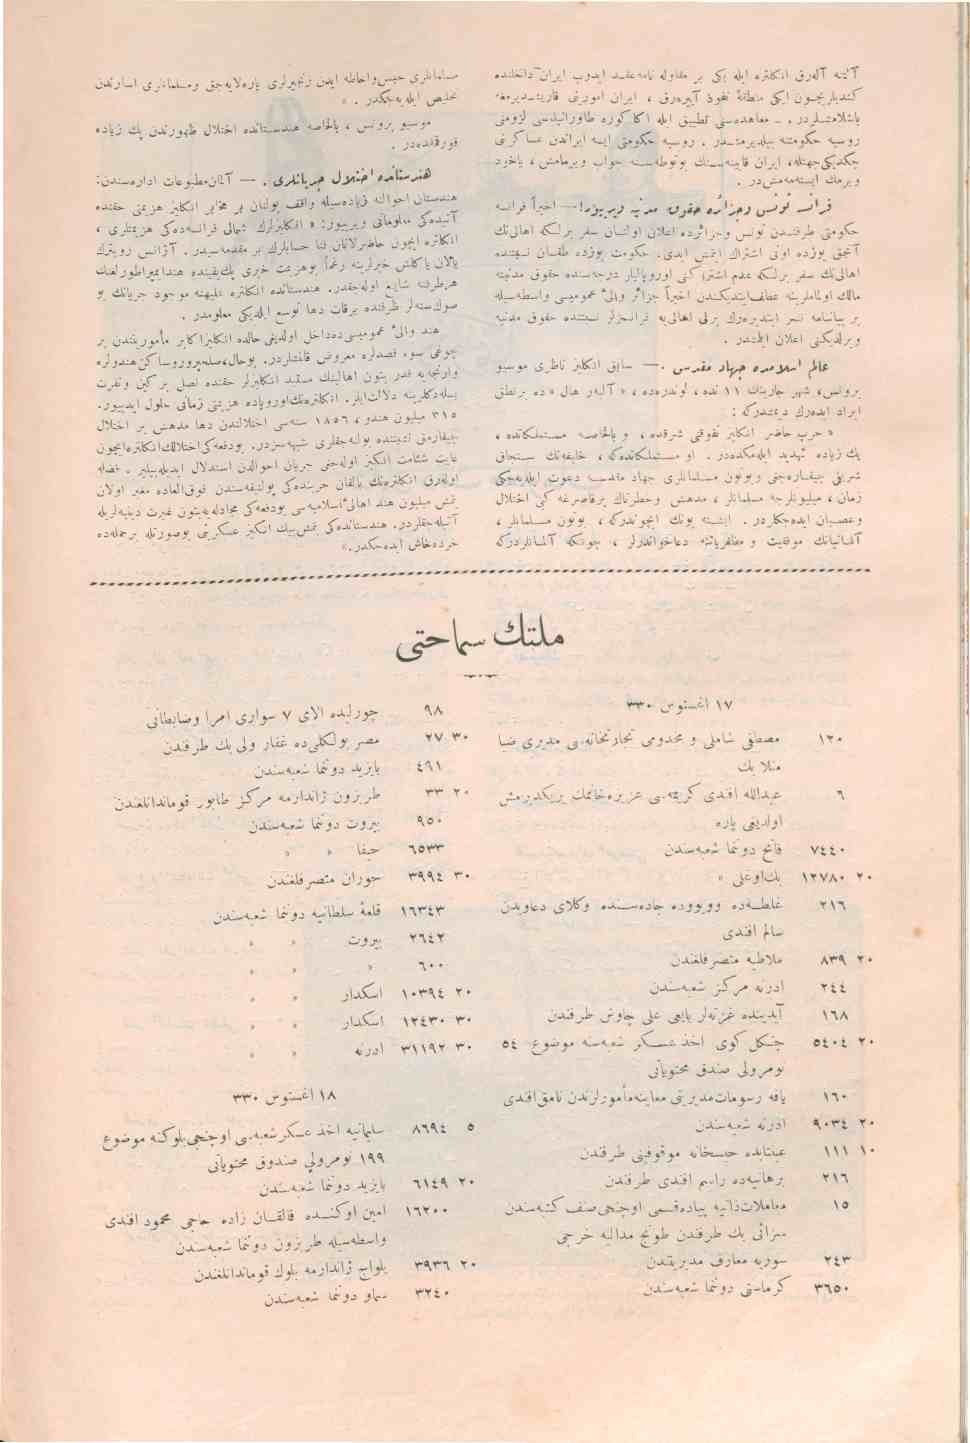 آلتنه آله‌رق انكلتره ايله يكی بر مقاوله نامه عقد ايدوب ايران داخلنده
كنديلريچون ايكی منطقهٔ نفوذ آييره‌رق ، ايران امورينی قاريشديرمغه
باشلامشلردر . ـ معاهده‌سنی تطبيق ايله اكا كوره طاورانيلدسی لزومنی
روسيه حكومتنه بيلديرمشدر . روسيه حكومتی ايسه ايراندن عساكرينی
چكديكی جهتله، ايران قابينه‌سنك بونوطه‌سنه جواب ويرمامش ، ياخود
ويرمك ايسته‌مه‌مش‌در .
فرانسه تونس وجزائره حقوق مدنيه ويرييور! — اخيراً فرانسه
حكومتی طرفندن تونس وجزائرده اعلان اولنان سفر برلكه اهالينك
آنجق يوزده اونی اشتراك ايتمش ايدی. حكومت يوزده طقسان نسبتنده
اهالينك سفر برلكه عدم اشتراكنی اوروپاليلر درجه‌سنده حقوق مدنيه
مالك اولمامالرينه عطف‌ايتديكندن اخيراً جزائر والیٔ عموميسی واسطه‌سيله
بر بياننامه نشر ايتديره‌رك يرلی اهالی‌يه فرانسزلر نسبتنده حقوق مدنيه
ويرلديكنی اعلان ايلمشدر .
عالم اسلامده جهاد مقدس . — سابق انكليز ناظری موسيو
برونس، شهر جارينك ١١ نده ، لوندره‌ده ، « آلبر هال » ده برنطق
ايراد ايده‌رك ديمشدركه :
« حرب حاضر انكليز نفوذنی شرقده ، و بالخاصه مستملكاتده ،
پك زياده تهديد ايله‌مكده‌در . او مستملكاتده‌كه ، خليفه‌نك سنجاق
شريفی چيقاره‌جغی وبوتون مسلمانلری جهاد مقدسه دعوت ايليه‌جكی
زمان ، ميليونلرجه مسلمانلر ، مدهش وخطرناك برقاصرغه كبی اختلال
وعصيان ايده‌جكلردر . ايشته بونك ايچوندركه ، بوتون مسلمانلر ،
آلمانيانك موفقيت و مظفرياتنه دعاخواندرلر ، چونكه آلمانلردركه
مسلمانلری حبس‌واحاطه ايدن زنجيرلری پاره‌لايه‌جق ومسلمانلری اسارتدن
تخليص ايليه‌جكدر . »
موسيو برونس ، بالخاصه هندستانده اختلال ظهورندن پك زياده
قورقمده‌در .
هندستانده اختلال جريانلری . — آلمان‌مطبوعات اداره‌سندن:
هندستان احوالنه زياده‌سيله واقف بولنان بر مخابر انكليز هزيمتی حقنده
آتيده‌كی معلوماتی ويرييور: « انكليزلرك شمالی فرانسه‌ده‌كی هزيمتلری ،
انكلتره ايچون حاضرلانان فنا حسابلرك بر مقدمه‌سيدر . آژانس رويترك
يالان ياكلش خبرلرينه رغماً بوهزيمت خبری پك‌يقينده هندايمپراطورلغنك
هرطرفنه شايع اوله‌جقدر. هندستانده انكلتره عليهنه موجود جريانك بو
صوك‌سنه‌لر ظرفنده برقات دها توسع ايلديكی معلومدر .
هند والیٔ عموميسی ده‌داخل اولديغی حالده انكليزاكابر مأموريندن بر
چوغی سوء قصدلره معروض قالمشلردر. بوحال،صلحپروروساكن‌هندولره
وارنجه‌يه قدر بتون اهالينك مستبد انكليزلر حقنده نصل بركين ونفرت
بسله‌دكلرينه دلالت‌ايلر. انكلتره‌نك‌اوروپاده هزيمتی زمانی حلول ايدييور.
٣١٥ ميليون هندو ، ١٨٥٦ سنه‌سی اختلالندن دها مدهش بر اختلال
چيقارمق نيتنده بولنه‌جقلری شبهه‌سزدر. بودفعه‌كی‌اختلالك‌انكلتره‌ايچون
غايت شئامت انكيز اوله‌جغی جريان احوالدن استدلال ايديله‌بيلير . فضله
اوله‌رق انكلتره‌نك بالقان حربنده‌كی پوليتيقه‌سندن فوق‌العاده مغبر اولان
يتمش ميليون هند اهالیٔ اسلاميه‌سی بودفعه‌كی مجادله‌يه‌بتون غيرت دينيه‌لريله
آتيله‌جقلردر. هندستانده‌كی يتمش‌بيك انكليز عسكرينی بوصورتله برحمله‌ده
خرده‌خاش ايده‌جكدر.»
ملتك سماحتی
١٧ اغستوس ٣٣٠
١٢٠ مصطفی شاملی و مخدومی تجارتخانه‌سی مديری ضيا
منلا بك
٦ عبدالله افندی كريمه‌سی عزيزه‌خانمك بريكديرمش
اولديغی پاره
٧٤٤٠ فاتح دونما شعبه‌سندن
٢٠ ١٢٧٨٠ بك‌اوغلی »
٢١٦ غلطه‌ده وويووده جاده‌سنده وكلای دعاويدن
سالم افندی
٢٠ ٨٣٩ ملاطيه متصرفلغندن
٢٤٤ ادرنه مركز شعبه‌سندن
١٦٨ آيدينده غزته‌لر بايعی علی چاوش طرفندن
٢٠ ٥٤٠٤ چنكل كوی اخذعسكر شعبه‌سنه موضوع ٥٤
نومرولی صندق محتوياتی
١٦٠ يافه رسومات‌مديريتی معاينه‌مأمورلرندن نامق‌افندی
٢٠ ٩٠٣٤ ادرنه شعبه‌سندن
١٠ ١١١ عينتابده حبسخانه موقوفينی طرفندن
٢١٦ برهانيه‌ده راسم افندی طرفندن
١٥ معاملات‌ذاتيه پياده‌قسمی اوچنجی‌صنف كتبه‌سندن
سزائی بك طرفندن طونج مداليه خرجی
٢٤٣ سوريه معارف مديريتندن
٣٦٥٠ كرماستی دونما شعبه‌سندن
٩٨ چورلیده الای ٧ سواری امرا وضابطانی
٣٠ ٢٧ مصر بولكلی‌ده غفار ولی بك طرفندن
٤٩١ بايزيد دونما شعبه‌سندن
٢٠ ٣٣ طربزون ژاندارمه مركز طابور قوماندانلغندن
٩٥٠ بيروت دونما شعبه‌سندن
٦٥٣٣ حيفا » »
٣٠ ٣٩٩٤ حوران متصرفلغندن
١٦٣٤٣ قلعهٔ سلطانيه دونما شعبه‌سندن
٢٦٤٢ بيروت » »
٦٠٠ » » »
٢٠ ١٠٣٩٤ اسكدار » »
٣٠ ١٢٤٣٠ اسكدار » »
٣٠ ٣١١٩٢ ادرنه » »
١٨ اغستوس ٣٣٠
٥ ٨٦٩٤ سليمانيه اخذ عسكرشعبه‌سی اوچنجی‌بلوكنه موضوع
١٩٩ نومرولی صندوق محتوياتی
٢٠ ٦١٤٩ بايزيد دونما شعبه‌سندن
١٦٢٠٠ امين اوكنده قالقان زاده حاجی محمود افندی
واسطه‌سيله طربزون دونما شعبه‌سندن
٢٠ ٣٩٣٦ يلواج ژاندارمه بلوك قوماندانلغندن
٣٢٤٠ سماو دونما شعبه‌سندن